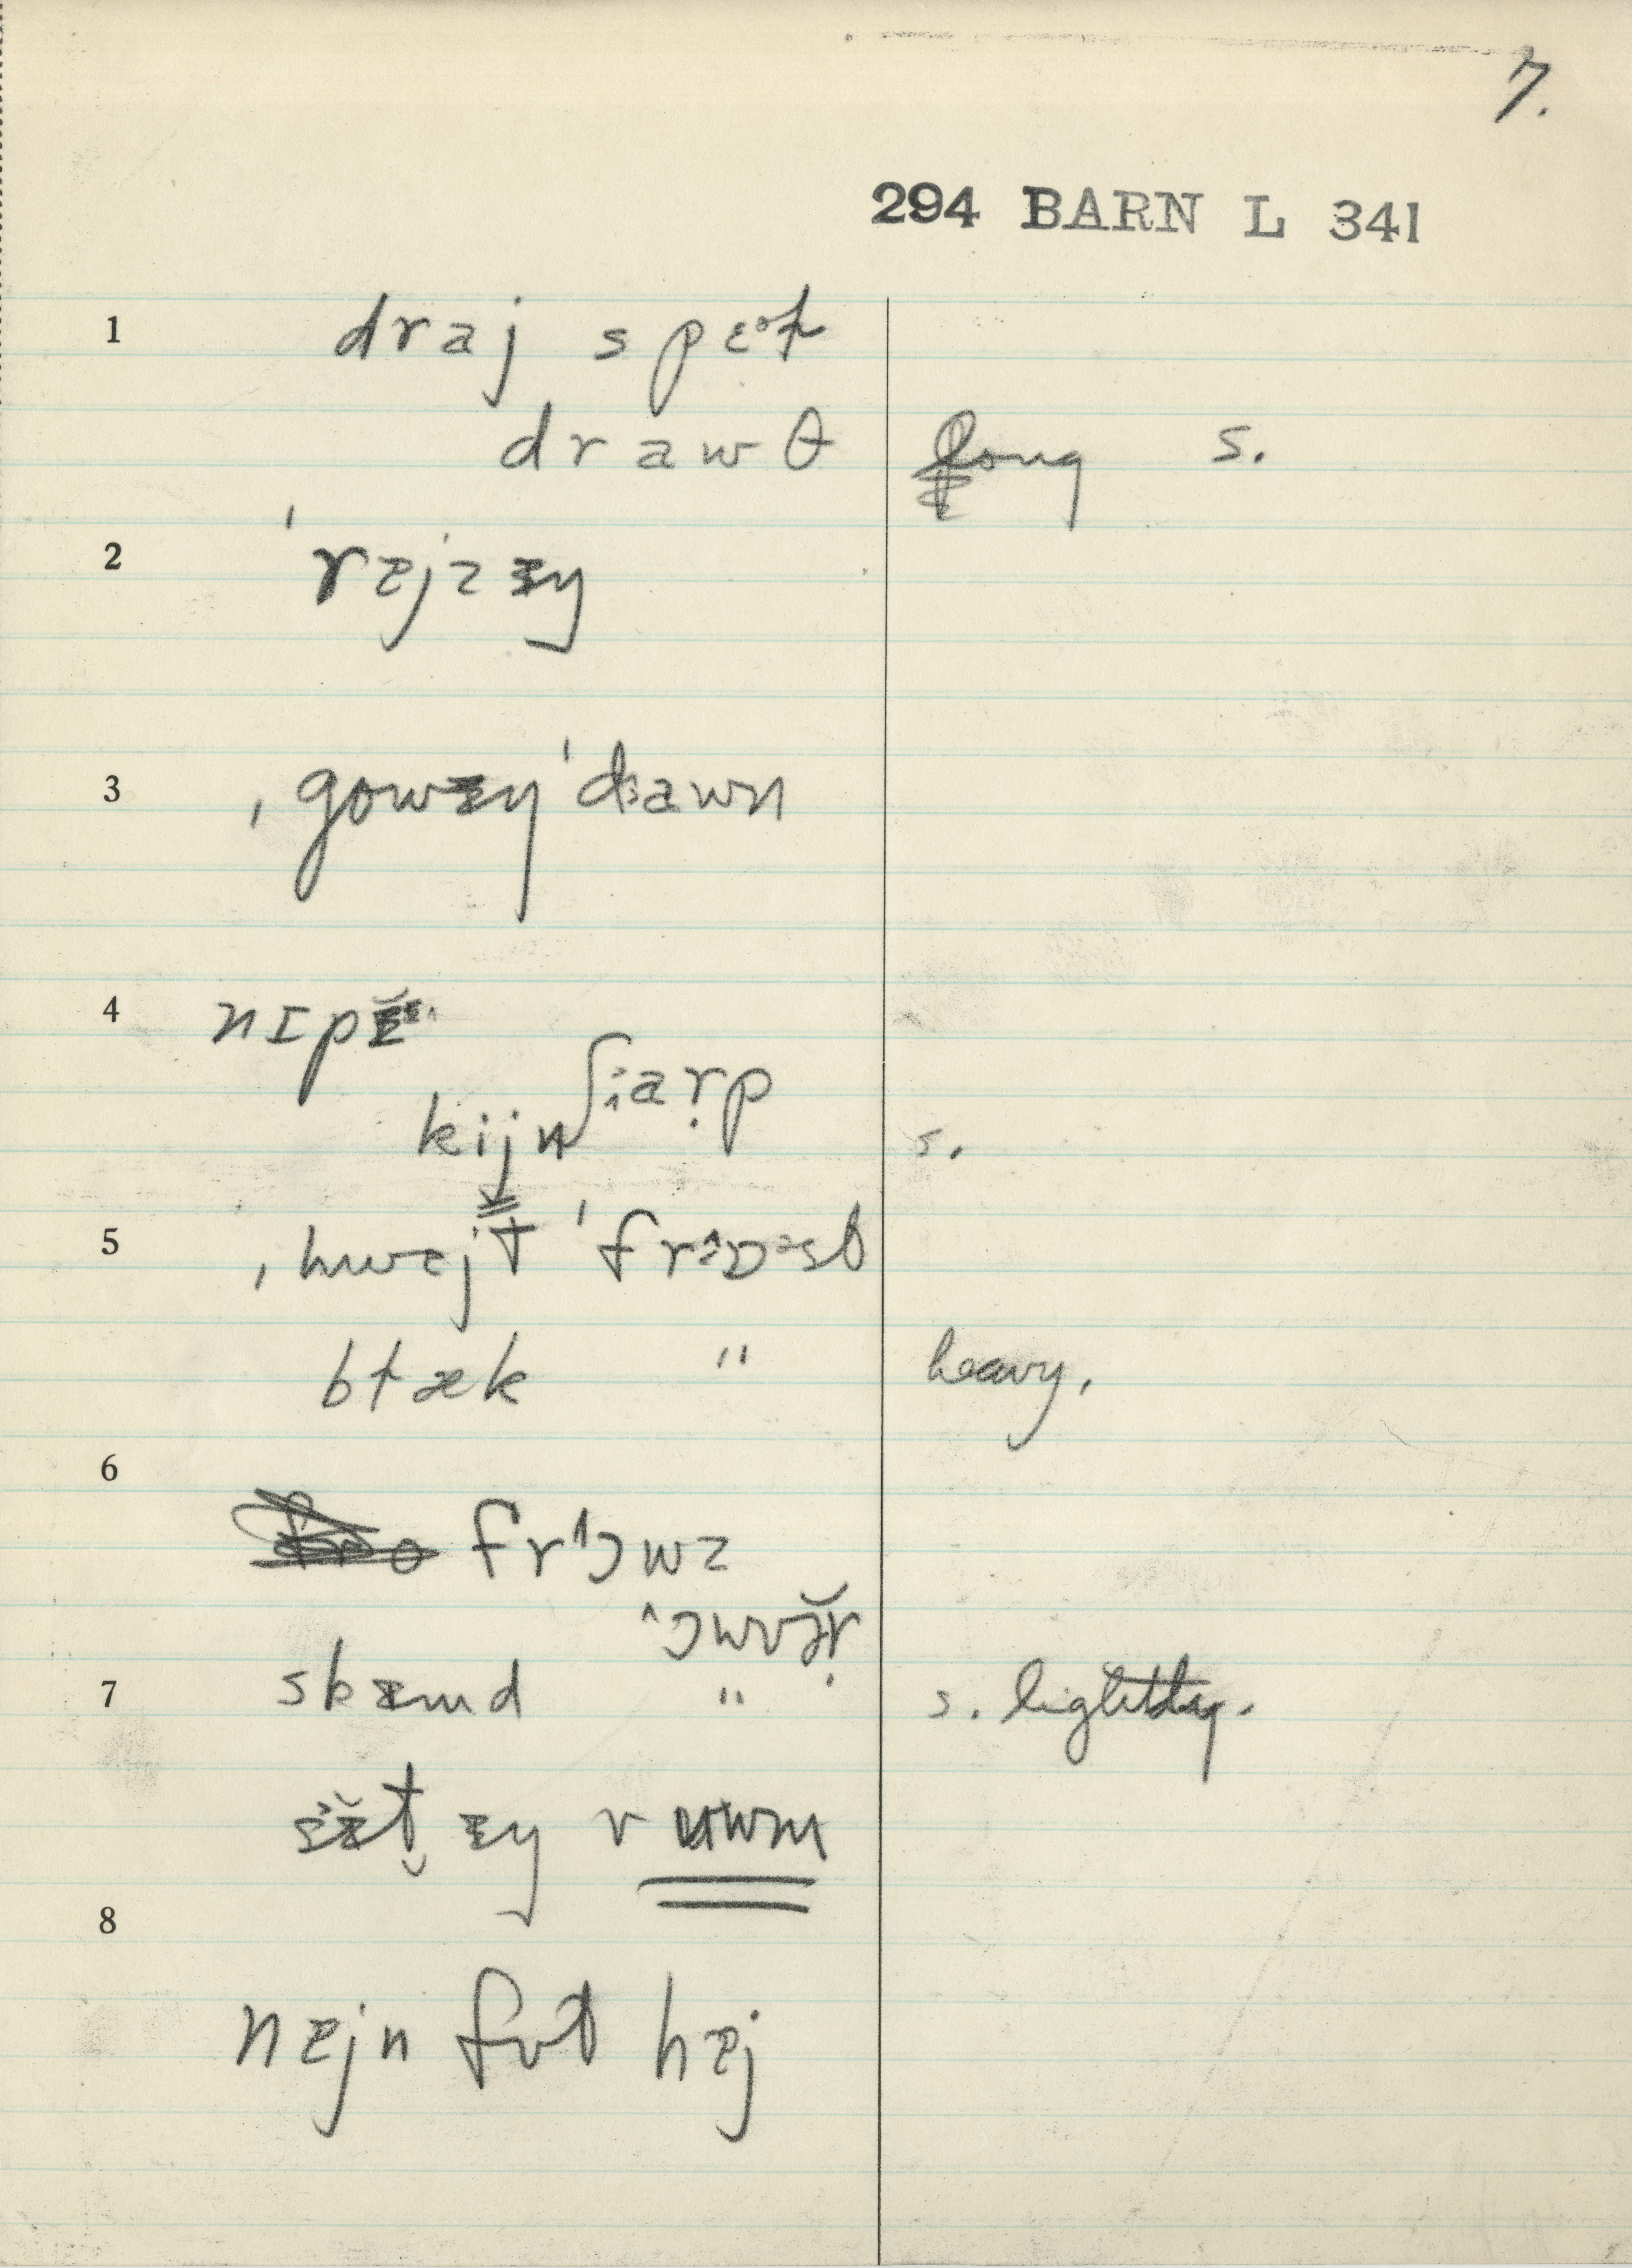 7.
294 BARN L 341
1 draj spɛᵊɫ
drawθ long s.
2 ˈrɛjzɪŋ
3 ˌgowɪŋ ˈdawn
4 nɪpɪ
kijn ʃarp s.
5 ˌhwɛjt ˈfrɔst
bɫæk " heavy.
6 frɔwz
ɔwvə̆ṛ
7 skɪmd " s. lightly.
ɪŋ ruwm
8
nɛjn fʊt hɛj